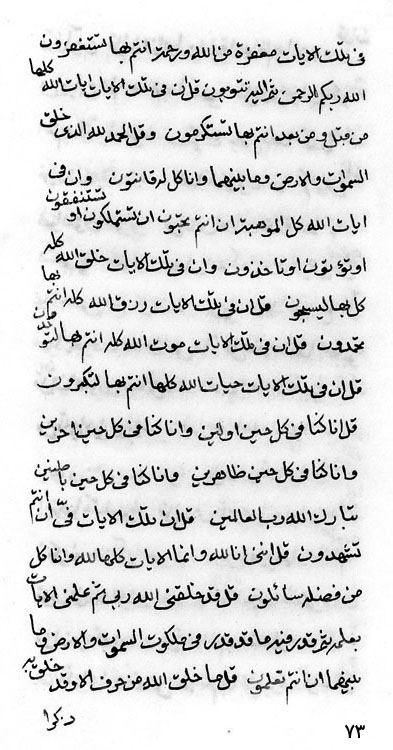 فی تلک الایات مغفرة من الله ورحمة انتم بها تستغفرون
الله ربکم الرحمن ثم الیه تتوبون قل ان فی تلک الایات ایات الله کلها
من قبل و من بعد انتم بها تستکرمون وقل الحمد لله الذی خلق
السموات والارض وما بینهما وانا کل له قانتون وان فی
ایات الله کل الموهبة ان انتم تحبون ان تستملکون او تستنفقون
او تؤتون او تاخذون وان فی تلک الایات خلق الله کله
کل بها لیسبحون قل ان فی تلک الایات رزق الله کله انتم بها
تحمدون قل ان فی تلک الایات موت الله کله انتم بها
قل ان فی تلک الایات حیات الله کلها انتم بها لتکبرون
قل انا کنا فی کل حین اولین وانا کنا فی کل حین اخرین
وانا کنا فی کل حین ظاهرین وانا کنا فی کل حین باطنین
تبارک الله رب العالمین قل ان تلک الایات فی ان انتم
تشهدون قل اننی انا لله وانما الایات کلها لله وانا کل
من فضله سائلون قل قد خلقنی الله ربی ثم علمنی الایات
بعلمه ثم قدر فیه ما قد قدر فی ملکوت السموات والارض وما
بینهما ان انتم تعلمون قل ما خلق الله من حرف الا وقد خلق به
ذکرا
٧٣